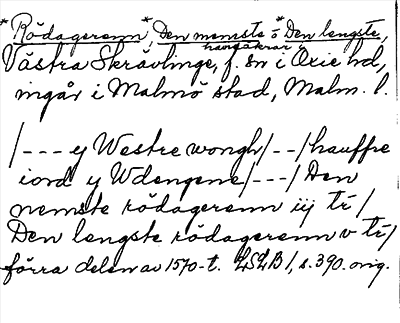 *Rödagerenn, *Den nemste o *Den lengste,
hampåkrar i
Västra Skrävlinge, f. sn i Oxie hd,
ingår i Malmö stad, Malm. l.
/--- y Westre wongh/--/hauffre
iord y Wdengene/---/ Den
nemste rödagerenn iij tr/
Den lengste rödagerenn v tr/
förra delen av 1570-t. LSLB 1, s. 390. orig.